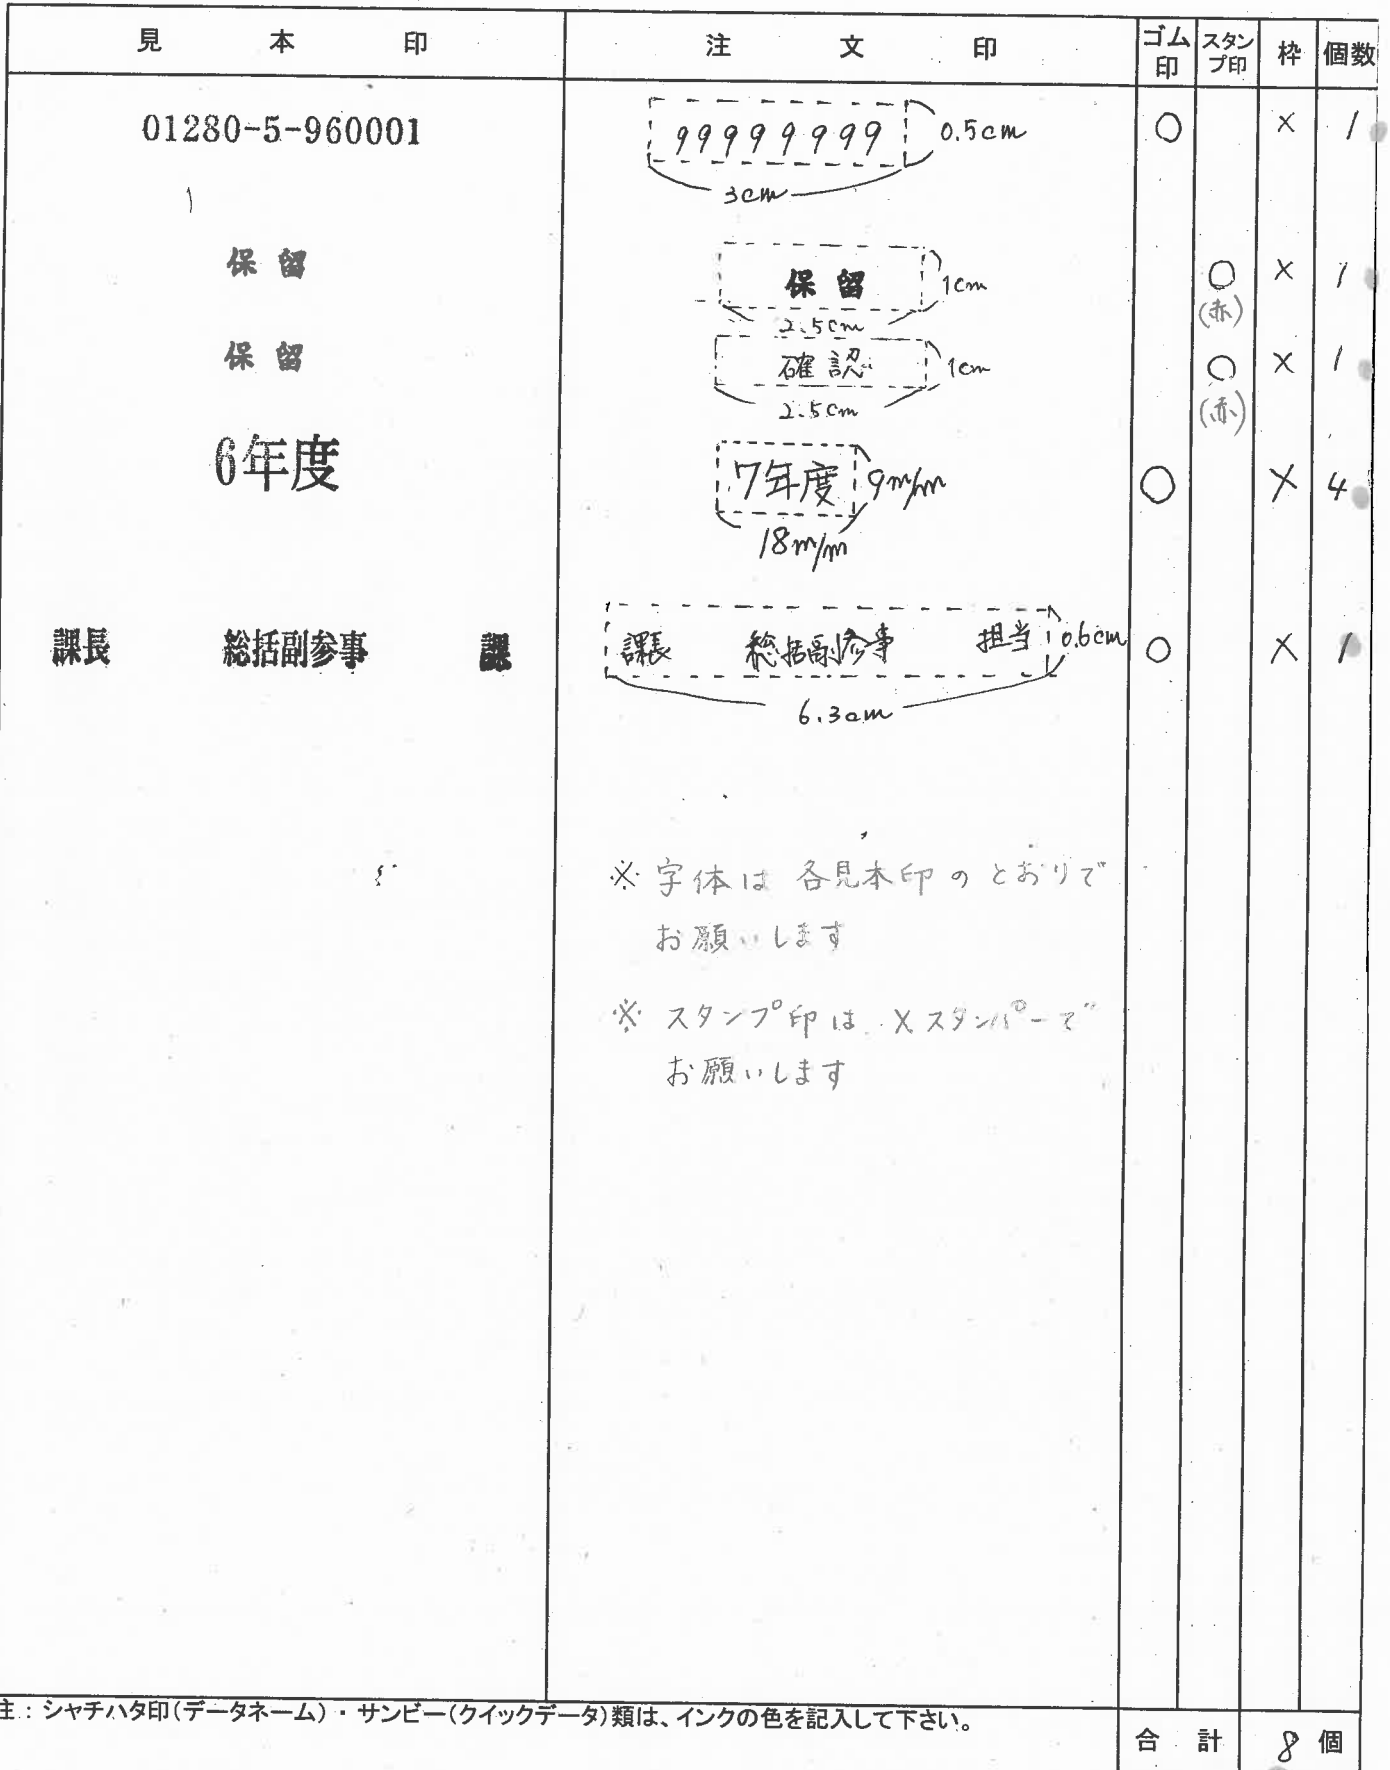 見本印 注文印 ゴム印 スタンプ印 枠 個数
01280-5-960001 99999999 0.5cm ○ × 1
3cm
保留 保留 1cm ○ × 1
2.5cm (赤)
保留 確認 1cm ○ × 1
2.5cm (赤)
6年度 7年度 9m/m ○ × 4
18m/m
課長 総括副参事 課 課長 総括副参事 担当 0.6cm ○ × 1
6.3cm
※ 字体は 各見本印のとおりで
お願いします
※ スタンプ印は Xスタンパーで
お願いします
注：シャチハタ印(データネーム)・サンビー(クイックデータ)類は、インクの色を記入して下さい。
合計 8個